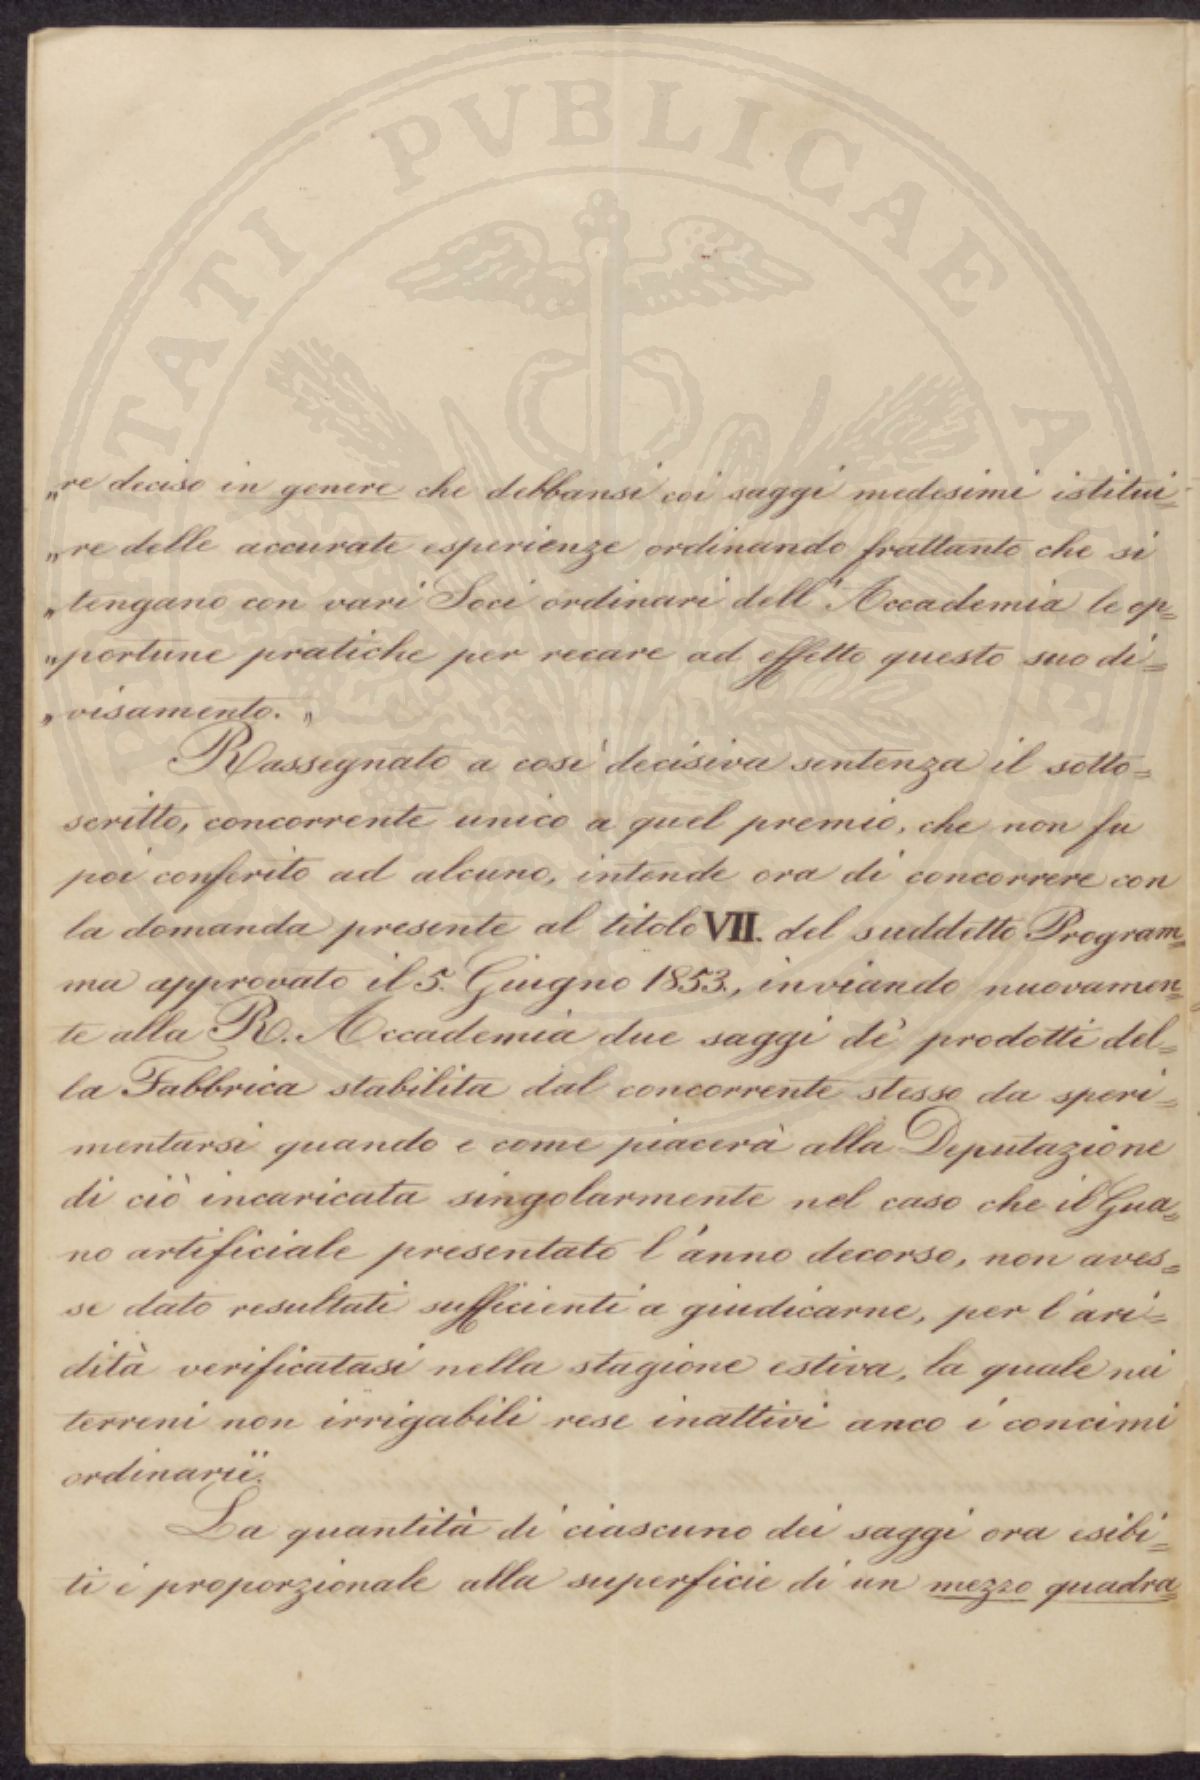 PROSPERITATI PVBLICAE AVGENDAE
„re deciso in genere che debbansi coi saggi medesimi istitui=
„re delle accurate esperienze ordinando frattanto che si
„tengano con vari Soci ordinari dell'Accademia le op=
„portune pratiche per recare ad effetto questo suo di=
„visamento. „
Rassegnato a così decisiva sentenza il sotto=
scritto, concorrente unico a quel premio, che non fu
poi conferito ad alcuno, intende ora di concorrere con
la domanda presente al titolo VII. del suddetto Program=
ma approvato il 5. Giugno 1853., inviando nuovamen=
te alla R. Accademia due saggi de' prodotti del=
la Fabbrica stabilita dal concorrente stesso da speri=
mentarsi quando e come piacerà alla Deputazione
di ciò incaricata singolarmente nel caso che il Gua=
no artificiale presentato l'anno decorso, non aves=
se dato resultati sufficienti a giudicarne, per l'ari=
dità verificatasi nella stagione estiva, la quale nei
terreni non irrigabili rese inattivi anco i concimi
ordinarii.
La quantità di ciascuno dei saggi ora esibi=
ti è proporzionale alla superficie di un mezzo quadra=